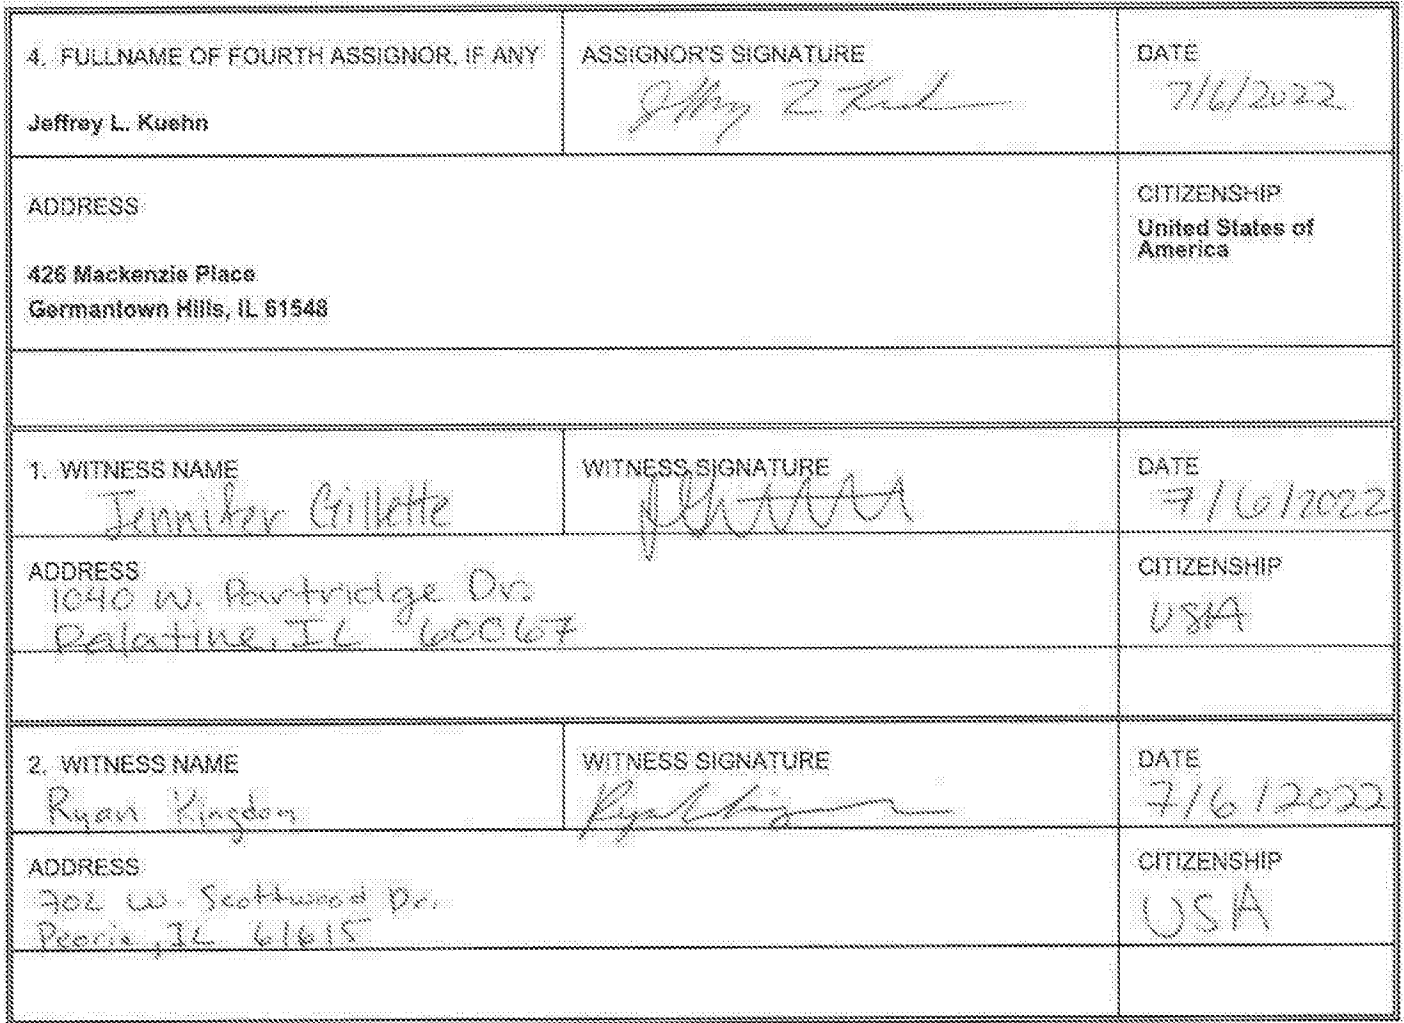 4. FULLNAME OF FOURTH ASSIGNOR, IF ANY
Jeffrey L. Kuehn
ASSIGNOR'S SIGNATURE
DATE
7/6/2022
ADDRESS
426 Mackenzie Place
Germantown Hills, IL 61548
CITIZENSHIP
United States of
America
1. WITNESS NAME
Jennifer Gillette
WITNESS SIGNATURE
DATE
7/6/2022
ADDRESS
1040 W. Partridge Dr.
Palatine, IL 60067
CITIZENSHIP
USA
2. WITNESS NAME
Ryan Kingdon
WITNESS SIGNATURE
DATE
7/6/2022
ADDRESS
702 W. Scottwood Dr.
Peoria, IL 61615
CITIZENSHIP
USA